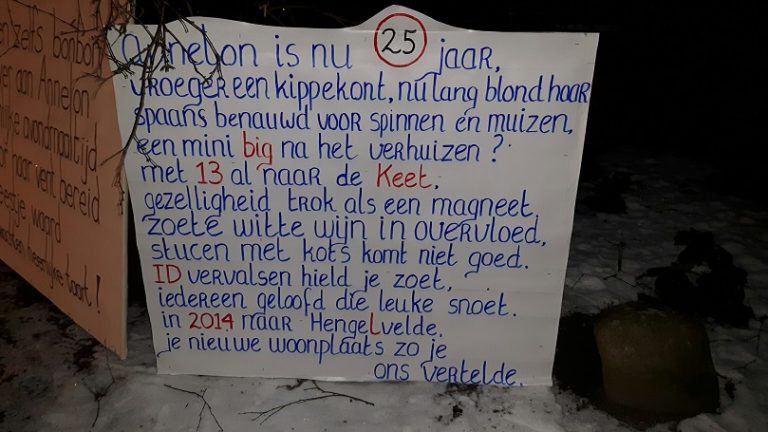 en zelfs bonbon
er aan Annelon
lijke avondmaaltijd
or naar vent bereid
feestje waard
heerlijke taart!
Annelon is nu 25 jaar,
vroeger een kippekont, nu lang blond haar
spaans benauwd voor spinnen en muizen,
een mini big na het verhuizen?
met 13 al naar de Keet,
gezelligheid trok als een magneet.
zoete witte wijn in overvloed,
stucen met kots komt niet goed.
ID vervalsen hield je zoet,
iedereen geloofd die leuke snoet.
in 2014 naar Hengelvelde.
je nieuwe woonplaats zo je
ons vertelde.